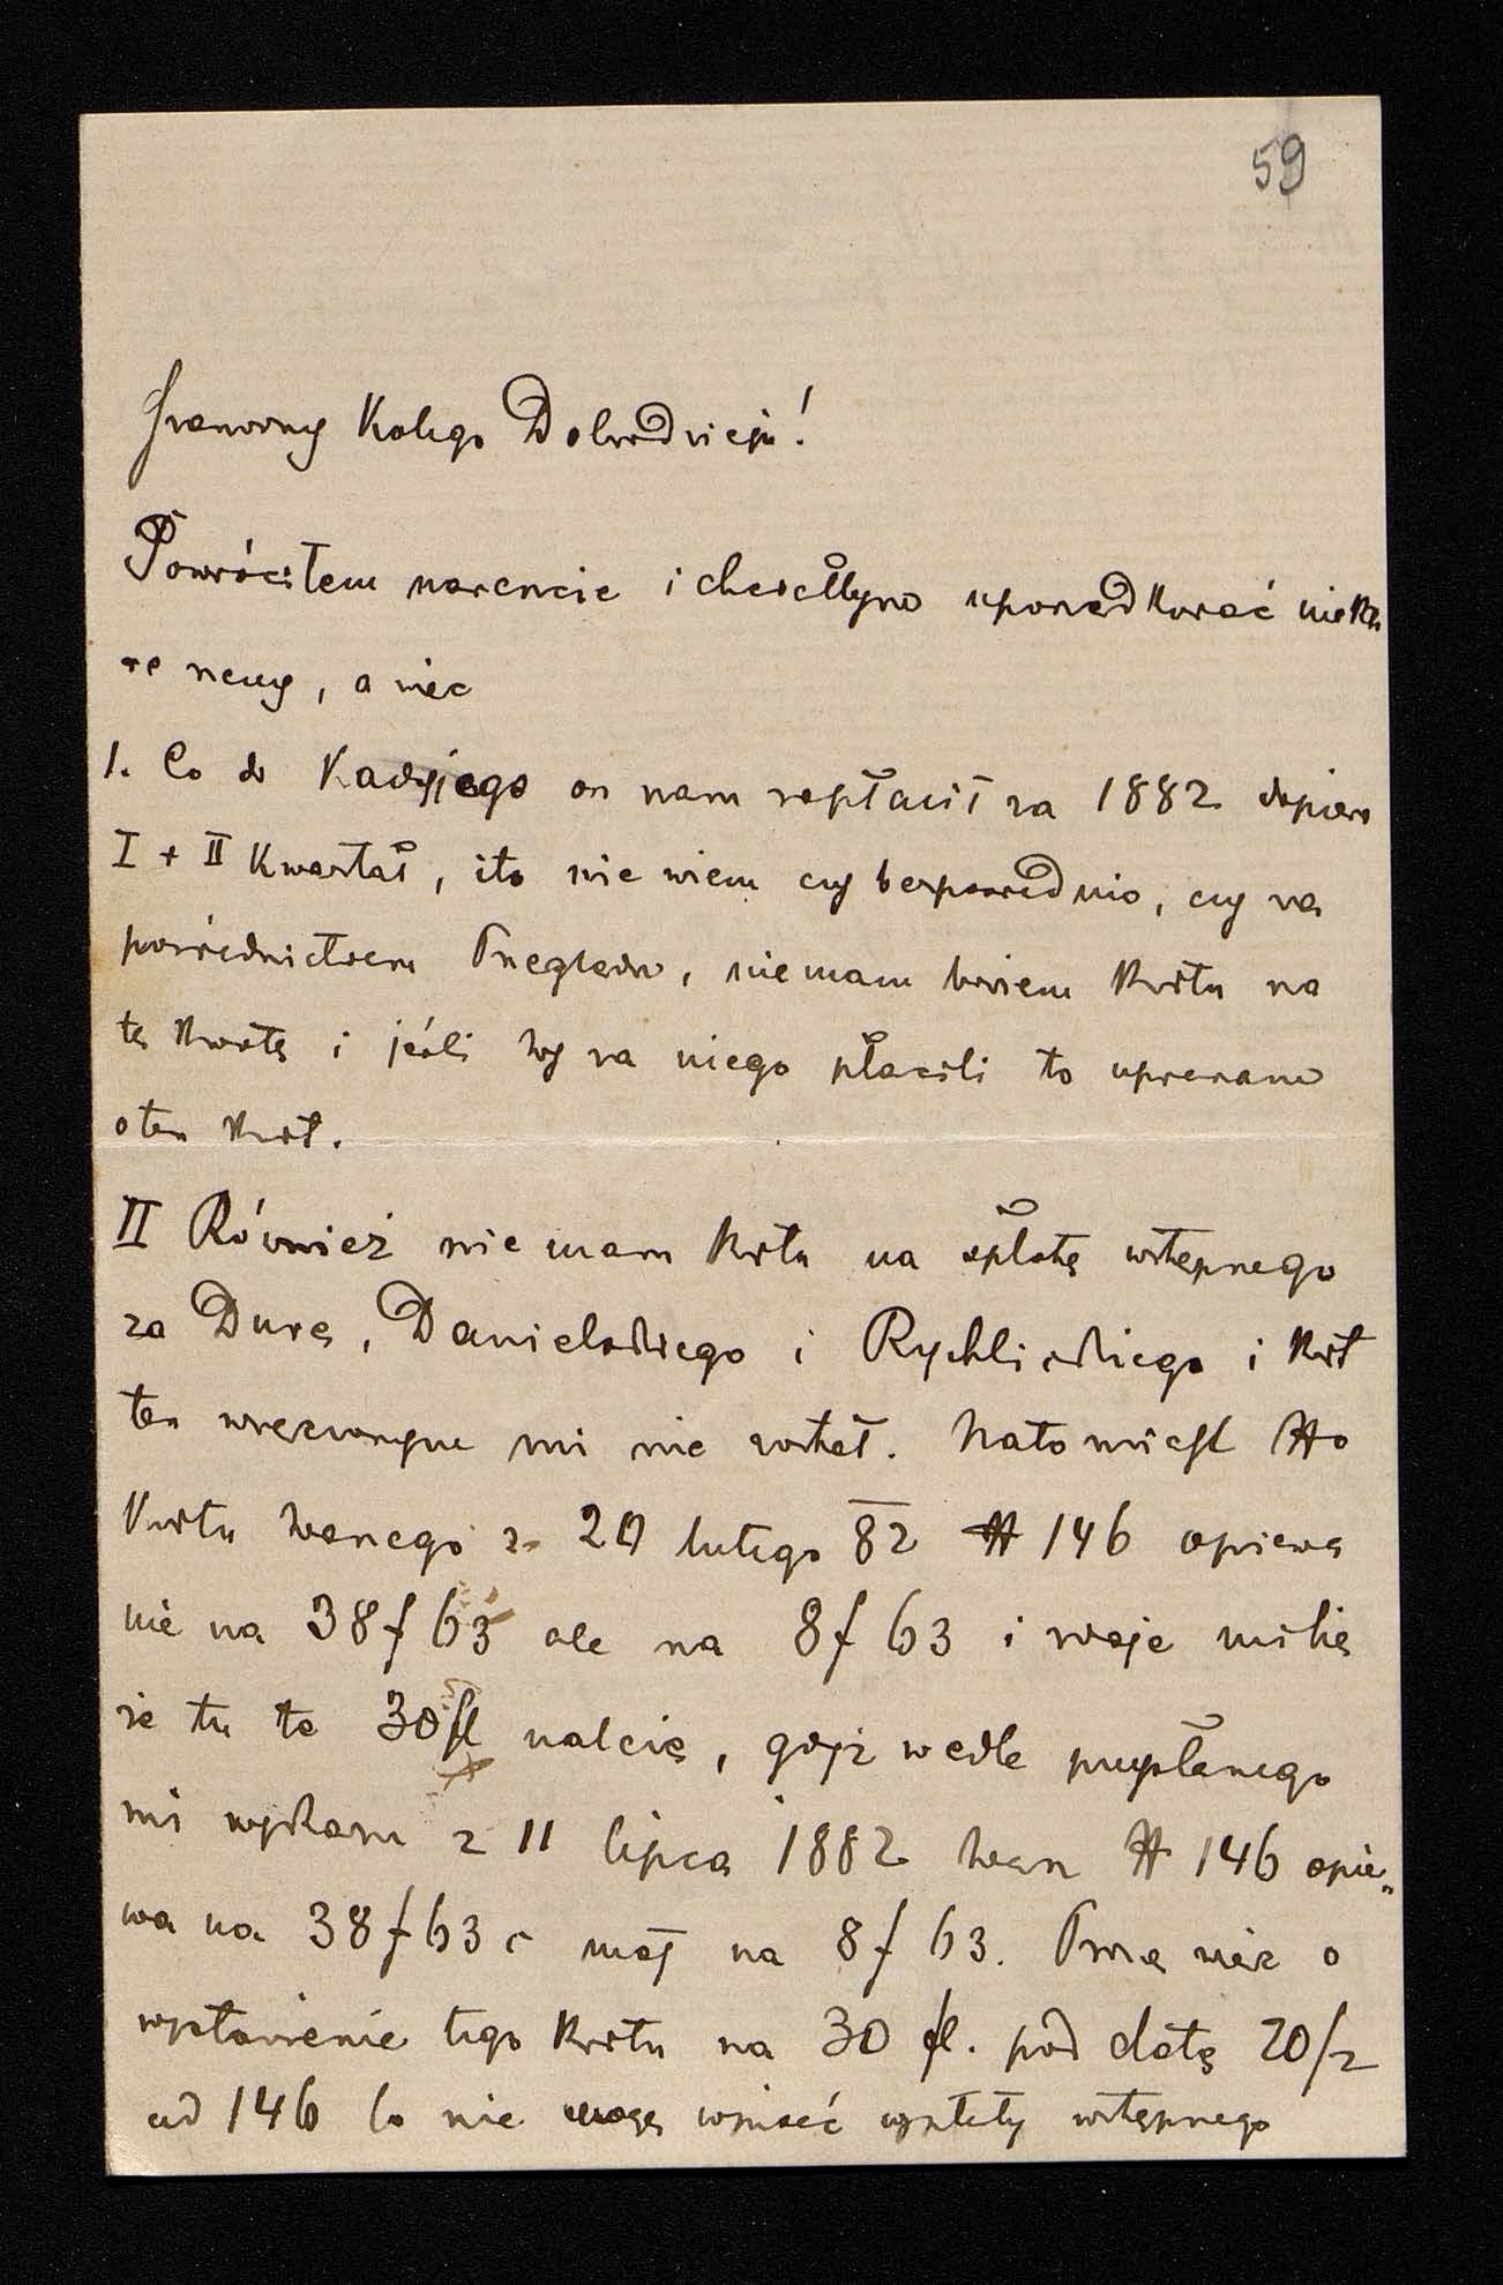 59
Szanowny Kolego Dobrodzieju!
Powróciłem nareszcie i chciałbym uporządkować niektó
re rzeczy, a więc
1. Co do Kadyjego on nam zapłacił za 1882 dopiero
I + II Kwartał, i to nie wiem czy bezpośrednio, czy za
pośrednictwem Przeglądu, nie mam bowiem kwitu na
tę kwotę i jeśli wy za niego płacili to upraszam
o ten kwit.
II Również nie mam kwitu na opłatę wstępnego
za Durę, Danielskiego i Rychlickiego i kwit
ten wręczonym mi nie został. Natomiast
kwitu z 20 lutego 82 # 146 opiewa
nie na 38 f 63 ale na 8 f 63 i zdaje mi się
że tu te 30 fl należą, gdyż wedle przysłanego
mi wykazu z 11 lipca 1882 # 146 opie„
wa na 38 f 63 c mój na 8 f 63. Proszę więc o
wystawienie tego kwitu na 30 fl. pod datą 20/2
ad 146 bo nie mogę wpisać wpłaty wstępnego